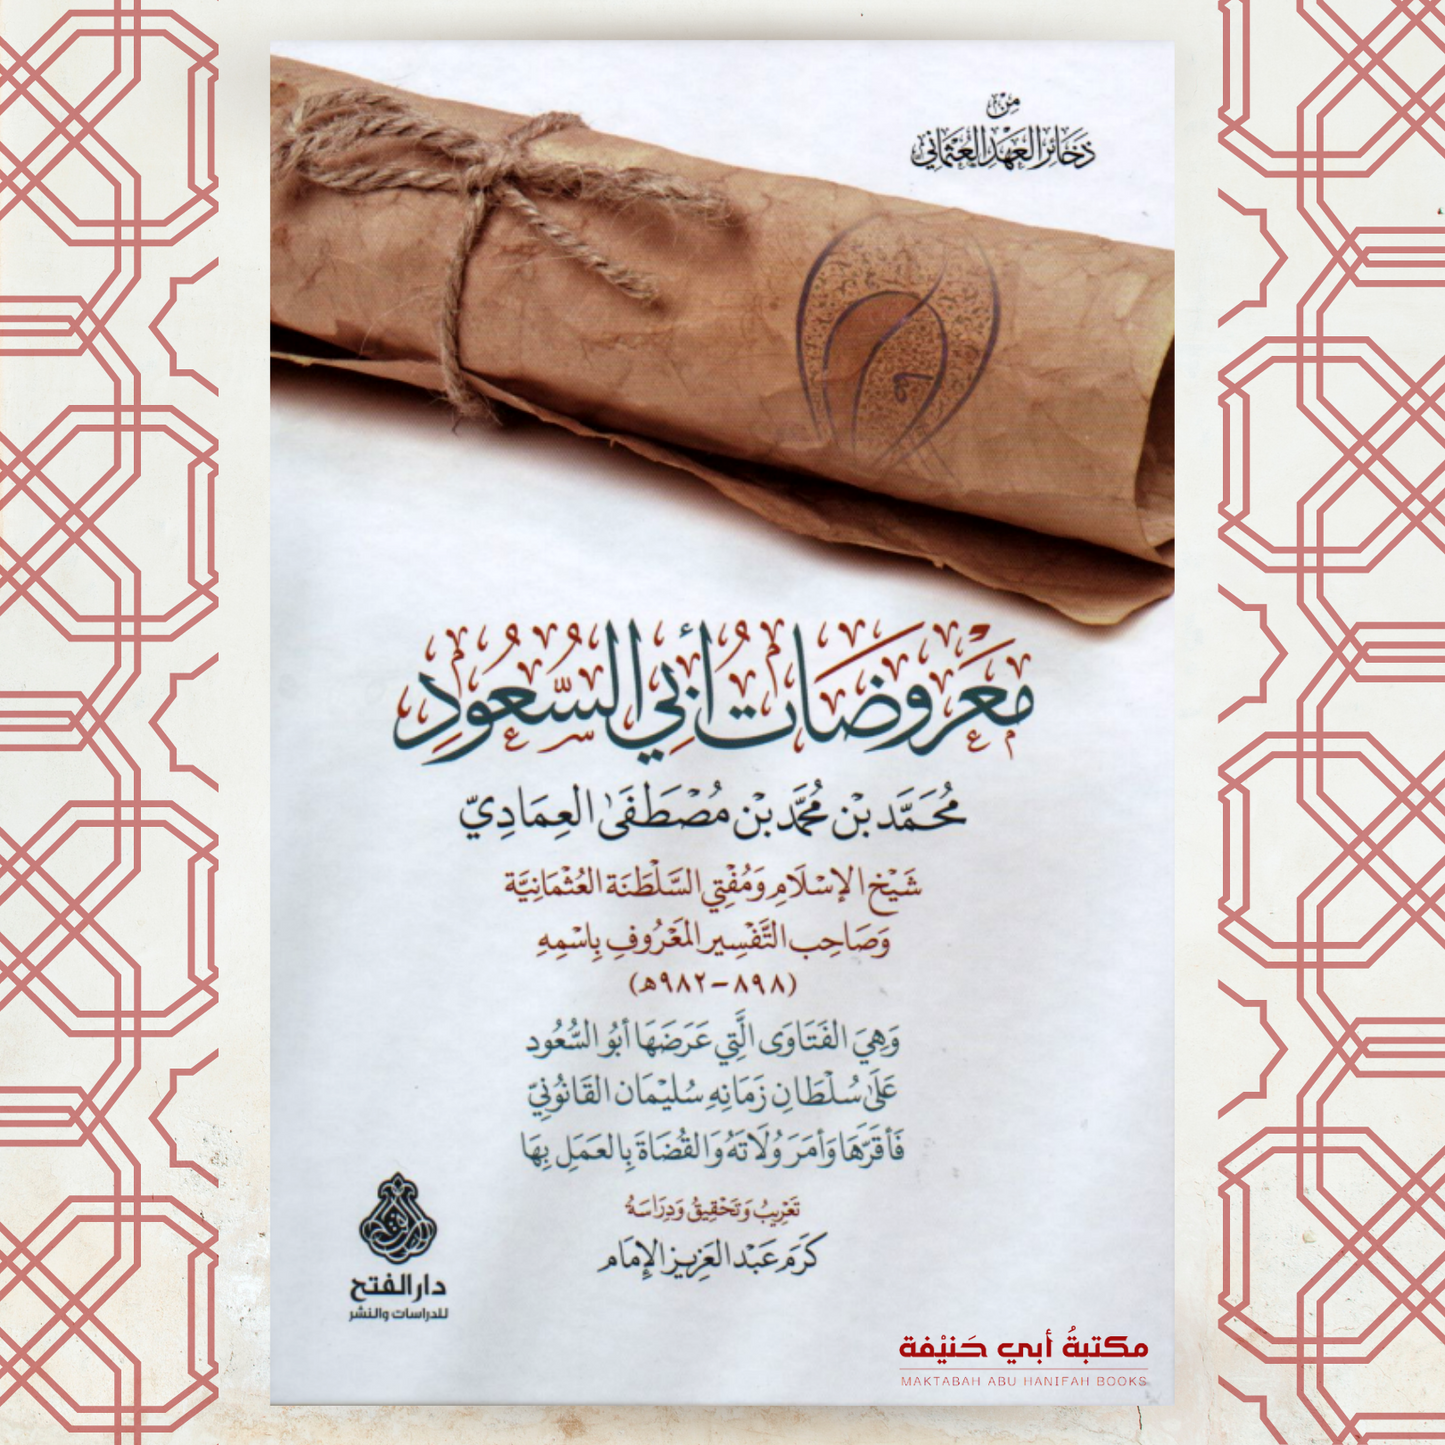 مِنْ
ذَخَائِرِ العَهْدِ العُثْمَانِي
مَعْرُوضَاتُ أَبِي السُّعُودِ
مُحَمَّد بْن مُحَمَّد بْن مُصْطَفَىٰ العِمَادِيّ
شَيْخ الإِسْلَامِ وَمُفْتِي السَّلْطَنَة العُثْمَانِيَّة
وَصَاحِب التَّفْسِير المَعْرُوفِ بِاسْمِهِ
(٨٩٨-٩٨٢هـ)
وَهِيَ الفَتَاوَى الَّتِي عَرَضَهَا أَبُو السُّعُود
عَلَىٰ سُلْطَانِ زَمَانِهِ سُلَيْمَان القَانُونِيّ
فَأَقَرَّهَا وَأَمَرَ وُلَاتَهُ وَالقُضَاةَ بِالعَمَلِ بِهَا
تَعْرِيبُ وَتَحْقِيقُ وَدِرَاسَةُ
كَرَم عَبْد العَزِيز الإِمَام
دار الفتح
للدراسات والنشر
مكتبةُ أبي حَنيْفة
MAKTABAH ABU HANIFAH BOOKS